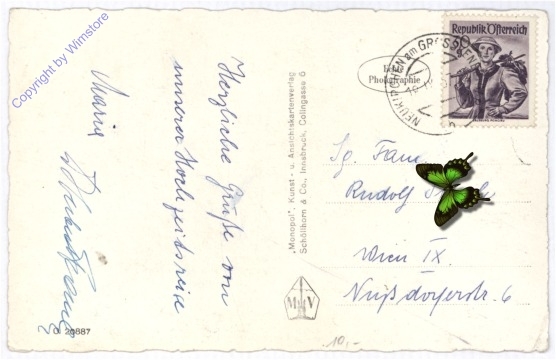 Copyright by Wimstore
Herzliche Grüße von
unserer Hochzeitsreise
Maria
"Monopol", Kunst- u. Ansichtskartenverlag
Schöllhorn & Co., Innsbruck, Colingasse 6
M V
20887
10,-
Echte
Photographie
NEUKIRCHEN am GROSS
Republik Österreich
Sg. Fam
Rudolf
Wien IX.
Nußdorferstr. 6